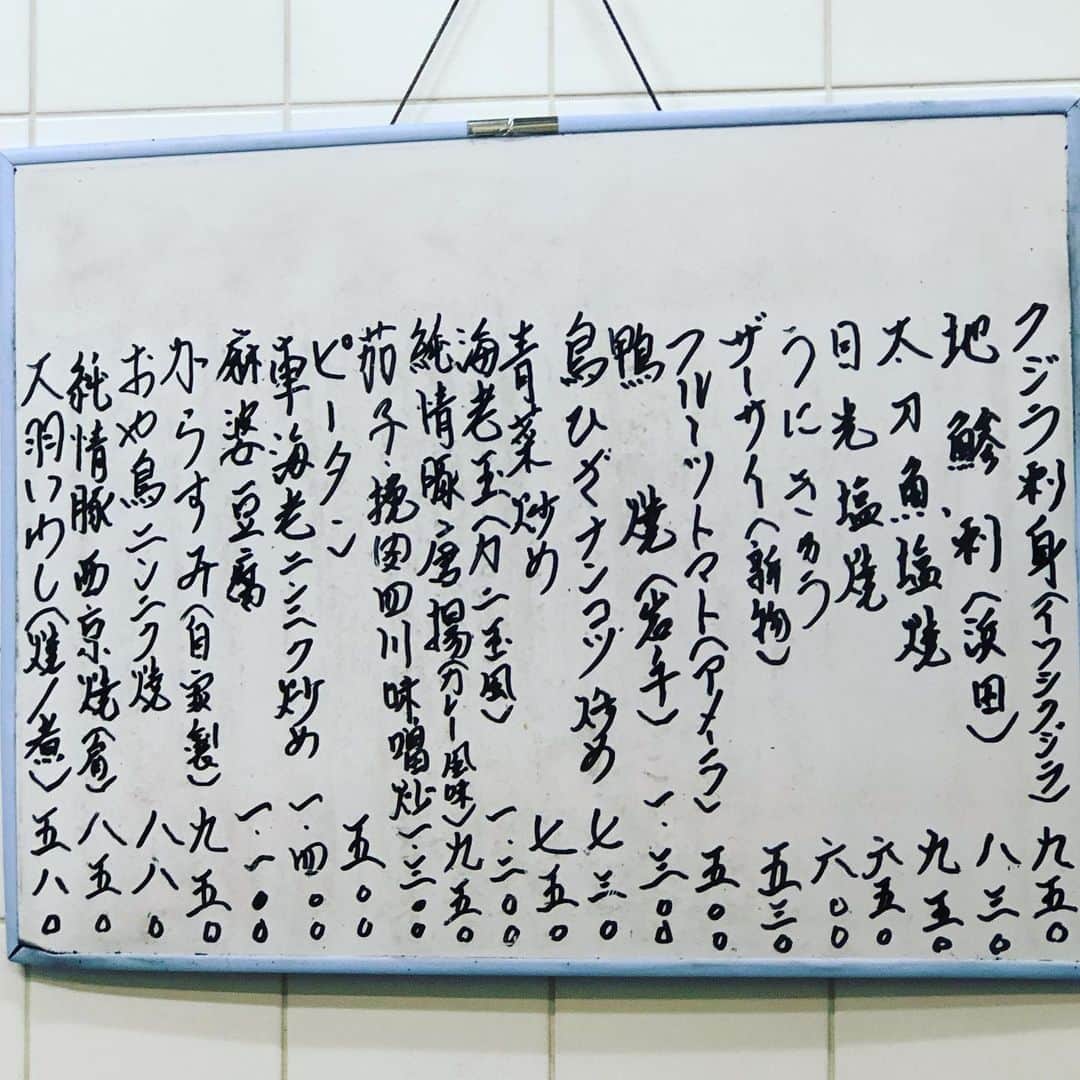 クジラ刺身(イワシクジラ)九五〇
地鯵刺(浜田)八三〇
太刀魚塩焼九五〇
日光塩焼六五〇
うにきゅう六〇〇
ザーサイ(新物)五三〇
フルーツトマト(アメーラ)五〇〇
鴨焼(岩手)一.三〇〇
鳥ひざナンコツ炒め七三〇
青菜炒め七五〇
海老玉(カニ玉風)一.二〇〇
純情豚唐揚(カレー風味)九五〇
茄子.挽肉四川味噌炒一.三〇〇
ピータン五〇〇
車海老ニンニク炒め一.四〇〇
麻婆豆腐一.一〇〇
からすみ(自家製)九五〇
おや鳥ニンニク焼八八〇
純情豚西京焼(肩)八五〇
大羽いわし(焼/煮)五八〇